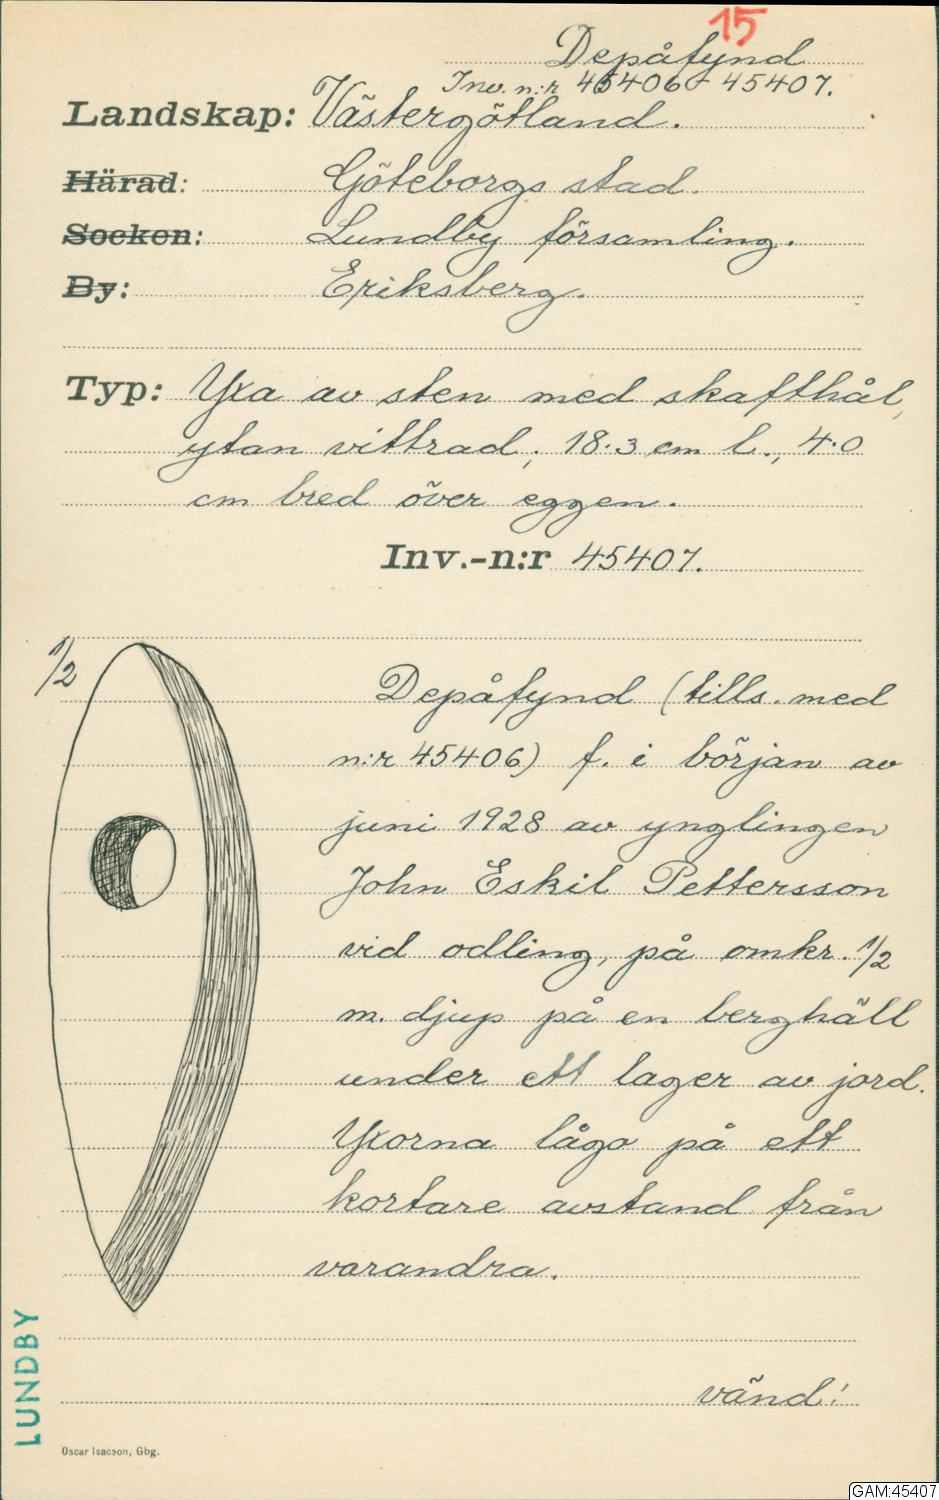 15
Depåfynd
Inv. n:r 45406 - 45407.
Landskap: Västergötland.
Härad: Göteborgs stad.
Socken: Lundby församling.
By: Eriksberg.
Typ: Yxa av sten med skafthål,
ytan vittrad; 18.3 cm l., 4.0
cm bred över eggen.
Inv.-n:r 45407.
1/2
Depåfynd (tills. med
n:r 45406) f. i början av
juni 1928 av ynglingen
John Eskil Pettersson
vid odling, på omkr. 1/2
m. djup på en berghäll
under ett lager av jord.
Yxorna lågo på ett
kortare avstånd från
varandra.
vänd!
LUNDBY
Oscar Isacson, Gbg.
GAM:45407